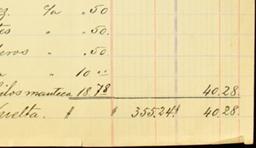 z. " .50
tes " .50
eros " .50
" 10 00
ilos manteca 18.78 40.28
vuelta. $ $ 355.24 $ 40.28